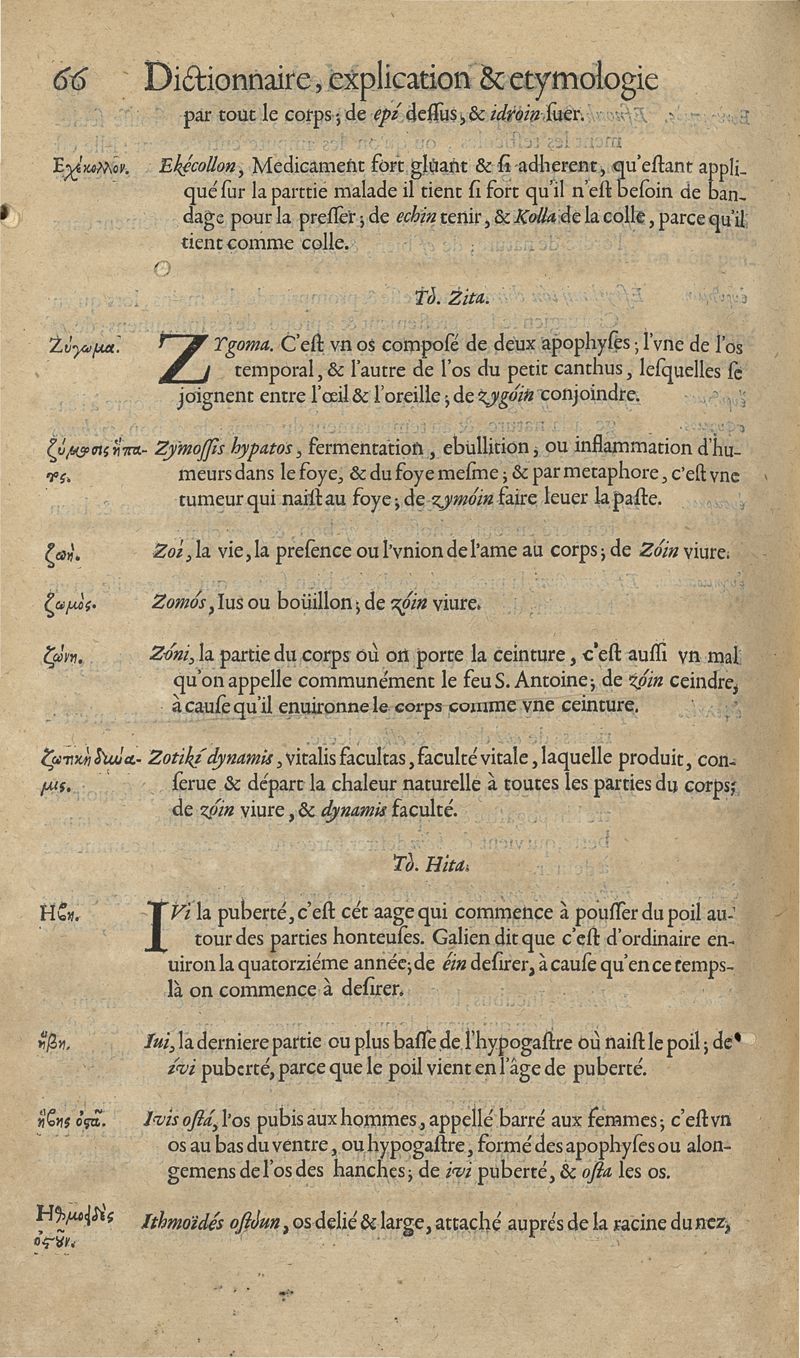 66 Dictionnaire, explication & etymologie
par tout le corps; de epí dessus, & idroin suer.
Ἐχέκολλον. Ekécollon, Medicament fort glüant & si adherent, qu'estant appli-
qué sur la parttie malade il tient si fort qu'il n'est besoin de ban-
dage pour la presser; de echin tenir, & Kolla de la colle, parce qu'il
tient comme colle.
Tò. Zita.
Ζύγωμα. ZYgoma. C'est vn os composé de deux apophyses; l'vne de l'os
temporal, & l'autre de l'os du petit canthus, lesquelles se
joignent entre l'œil & l'oreille; de zygóin conjoindre.
ζύμωσις ἥπα- Zymossis hypatos, fermentation, ebullition, ou inflammation d'hu-
τος. meurs dans le foye, & du foye mesme; & par metaphore, c'est vne
tumeur qui naist au foye; de zymóin faire leuer la paste.
ζωὴ. Zoï, la vie, la presence ou l'vnion de l'ame au corps; de Zóin viure.
ζωμὸς. Zomós, Ius ou boüillon; de zóin viure.
ζώνη. Zóni, la partie du corps où on porte la ceinture, c'est aussi vn mal
qu'on appelle communément le feu S. Antoine; de zóin ceindre,
à cause qu'il enuironne le corps comme vne ceinture.
ζωτικὴ δύνα- Zotikí dynamis, vitalis facultas, faculté vitale, laquelle produit, con-
μις. serue & départ la chaleur naturelle à toutes les parties du corps;
de zóin viure, & dynamis faculté.
Tò. Hita.
Ηβη. IVi la puberté, c'est cét aage qui commence à pousser du poil au-
tour des parties honteuses. Galien dit que c'est d'ordinaire en-
uiron la quatorziéme année; de éin desirer, à cause qu'en ce temps-
là on commence à desirer.
ἥβη. Iui, la derniere partie ou plus basse de l'hypogastre où naist le poil; de
ívi puberté, parce que le poil vient en l'âge de puberté.
ἥβης ὀστᾶ. Ivis ostá, l'os pubis aux hommes, appellé barré aux femmes; c'est vn
os au bas du ventre, ou hypogastre, formé des apophyses ou alon-
gemens de l'os des hanches; de ivi puberté, & osta les os.
Ηθμοειδὲς Ithmoïdés ostóun, os delié & large, attaché auprés de la racine du nez,
ὀστοῦν.